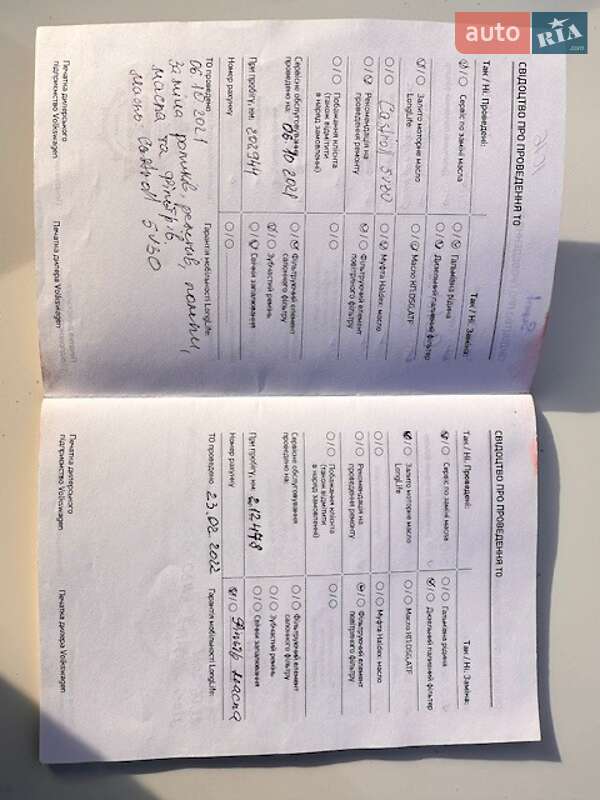 auto RIA.com
СВІДОЦТВО ПРО ПРОВЕДЕННЯ ТО
Так / Ні. Проведені:
Сервіс по заміні масла
Залито моторне масло
LongLife
Castrol 5V30
Рекомендація на
проведення ремонту
Побажання клієнта
(також відмітити
в наряд замовленні)
Сервісне обслуговування
проведено на: 06.10 2021
При пробігу, км: 202944
Номер рахунку
ТО проведено
06 10 2021
Заміна роликів, ременів, помпи,
масла та фільтрів
масло Castrol 5V30
Печатка дилерського
підприємства Volkswagen
Так / Ні. Заміна:
Гальмівна рідина
Дизельний паливний фільтр
Масло КП,DSG,ATF
Муфта Haldex: масло
Фільтруючий елемент
повітряного фільтру
Фільтруючий елемент
салонного фільтру
Зубчастий ремінь
Свічки запалювання
Гарантія мобільності LongLife:
Печатка дилера Volkswagen
СВІДОЦТВО ПРО ПРОВЕДЕННЯ ТО
Так / Ні. Проведені:
Сервіс по заміні масла
Залито моторне масло
LongLife
Рекомендація на
проведення ремонту
Побажання клієнта
(також відмітити
в наряд замовленні)
Сервісне обслуговування
проведено на:
При пробігу, км: 212478
Номер рахунку
ТО проведено 23.02.2022
Печатка дилерського
підприємства Volkswagen
Так / Ні. Заміна:
Гальмівна рідина
Дизельний паливний фільтр
Масло КП,DSG,ATF
Муфта Haldex: масло
Фільтруючий елемент
повітряного фільтру
Фільтруючий елемент
салонного фільтру
Зубчастий ремінь
Свічки запалювання
Фільтр масла
Гарантія мобільності LongLife:
Печатка дилера Volkswagen